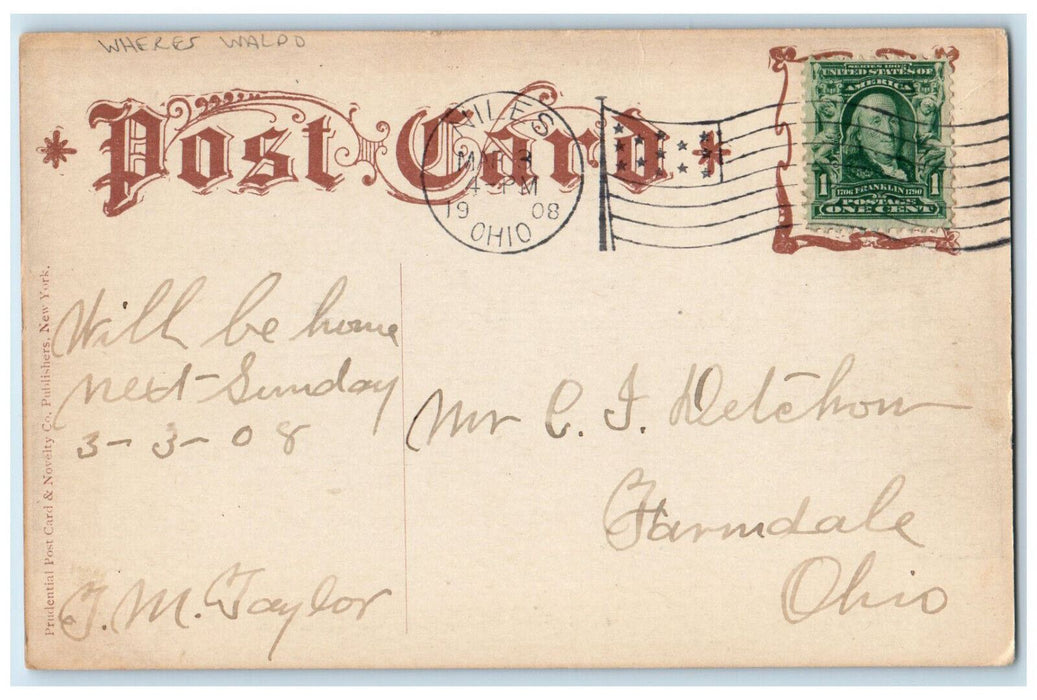 WHERES WALDO
Post Card
NILES
MAR 3
4 - PM
19 08
OHIO
SERIES 1902
UNITED STATES OF
AMERICA
1 1706 FRANKLIN 1790 1
POSTAGE
ONE CENT
Prudential Post Card & Novelty Co. Publishers, New York.
Will be home
next Sunday
3-3-08
J. M. Taylor
Mr C. I. Detchon
Farmdale
Ohio